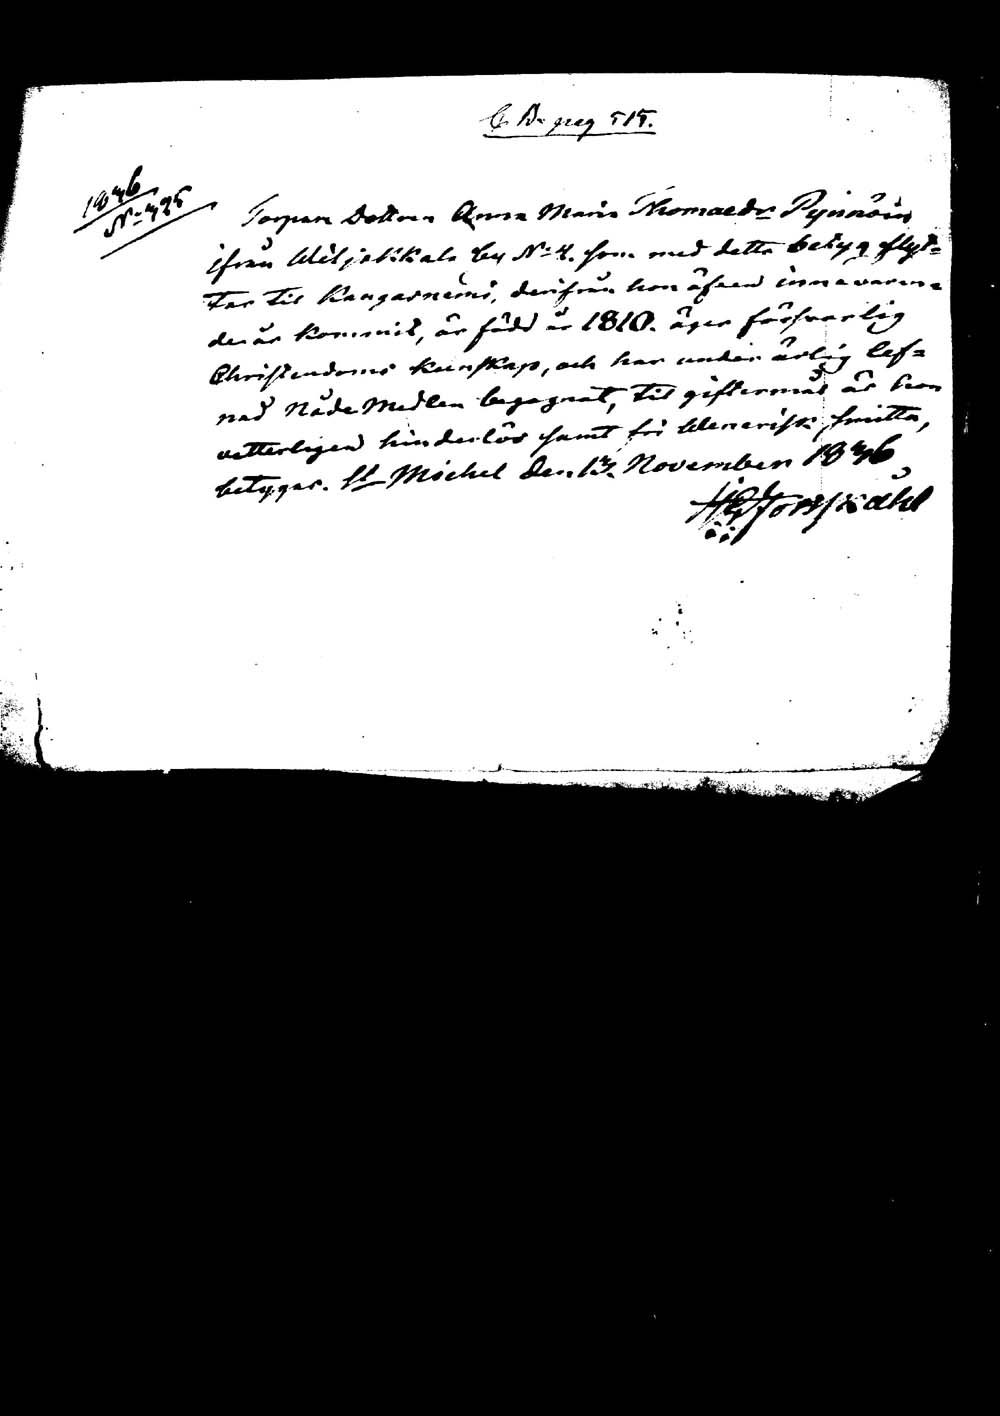 C. B. pag 515.
1836
N:o 325
Torpare Dottren Anna Maria Thomaedr Pynnöin
ifrån Weitjakkala by N:o 4. som med detta betyg flyt=
tar til Kangasniemi, derifrån hon äfven innevaran=
de år kommit, är född år 1810. äger försvarlig
Christendoms kunskap, och har under ärlig lef=
nad Nåde Medlen begagnat, til giftermål är hon
vetterligen hinderlös samt fri Wenerisk smitta,
betygar. St Michel den 13. November 1836
Forsskåhl